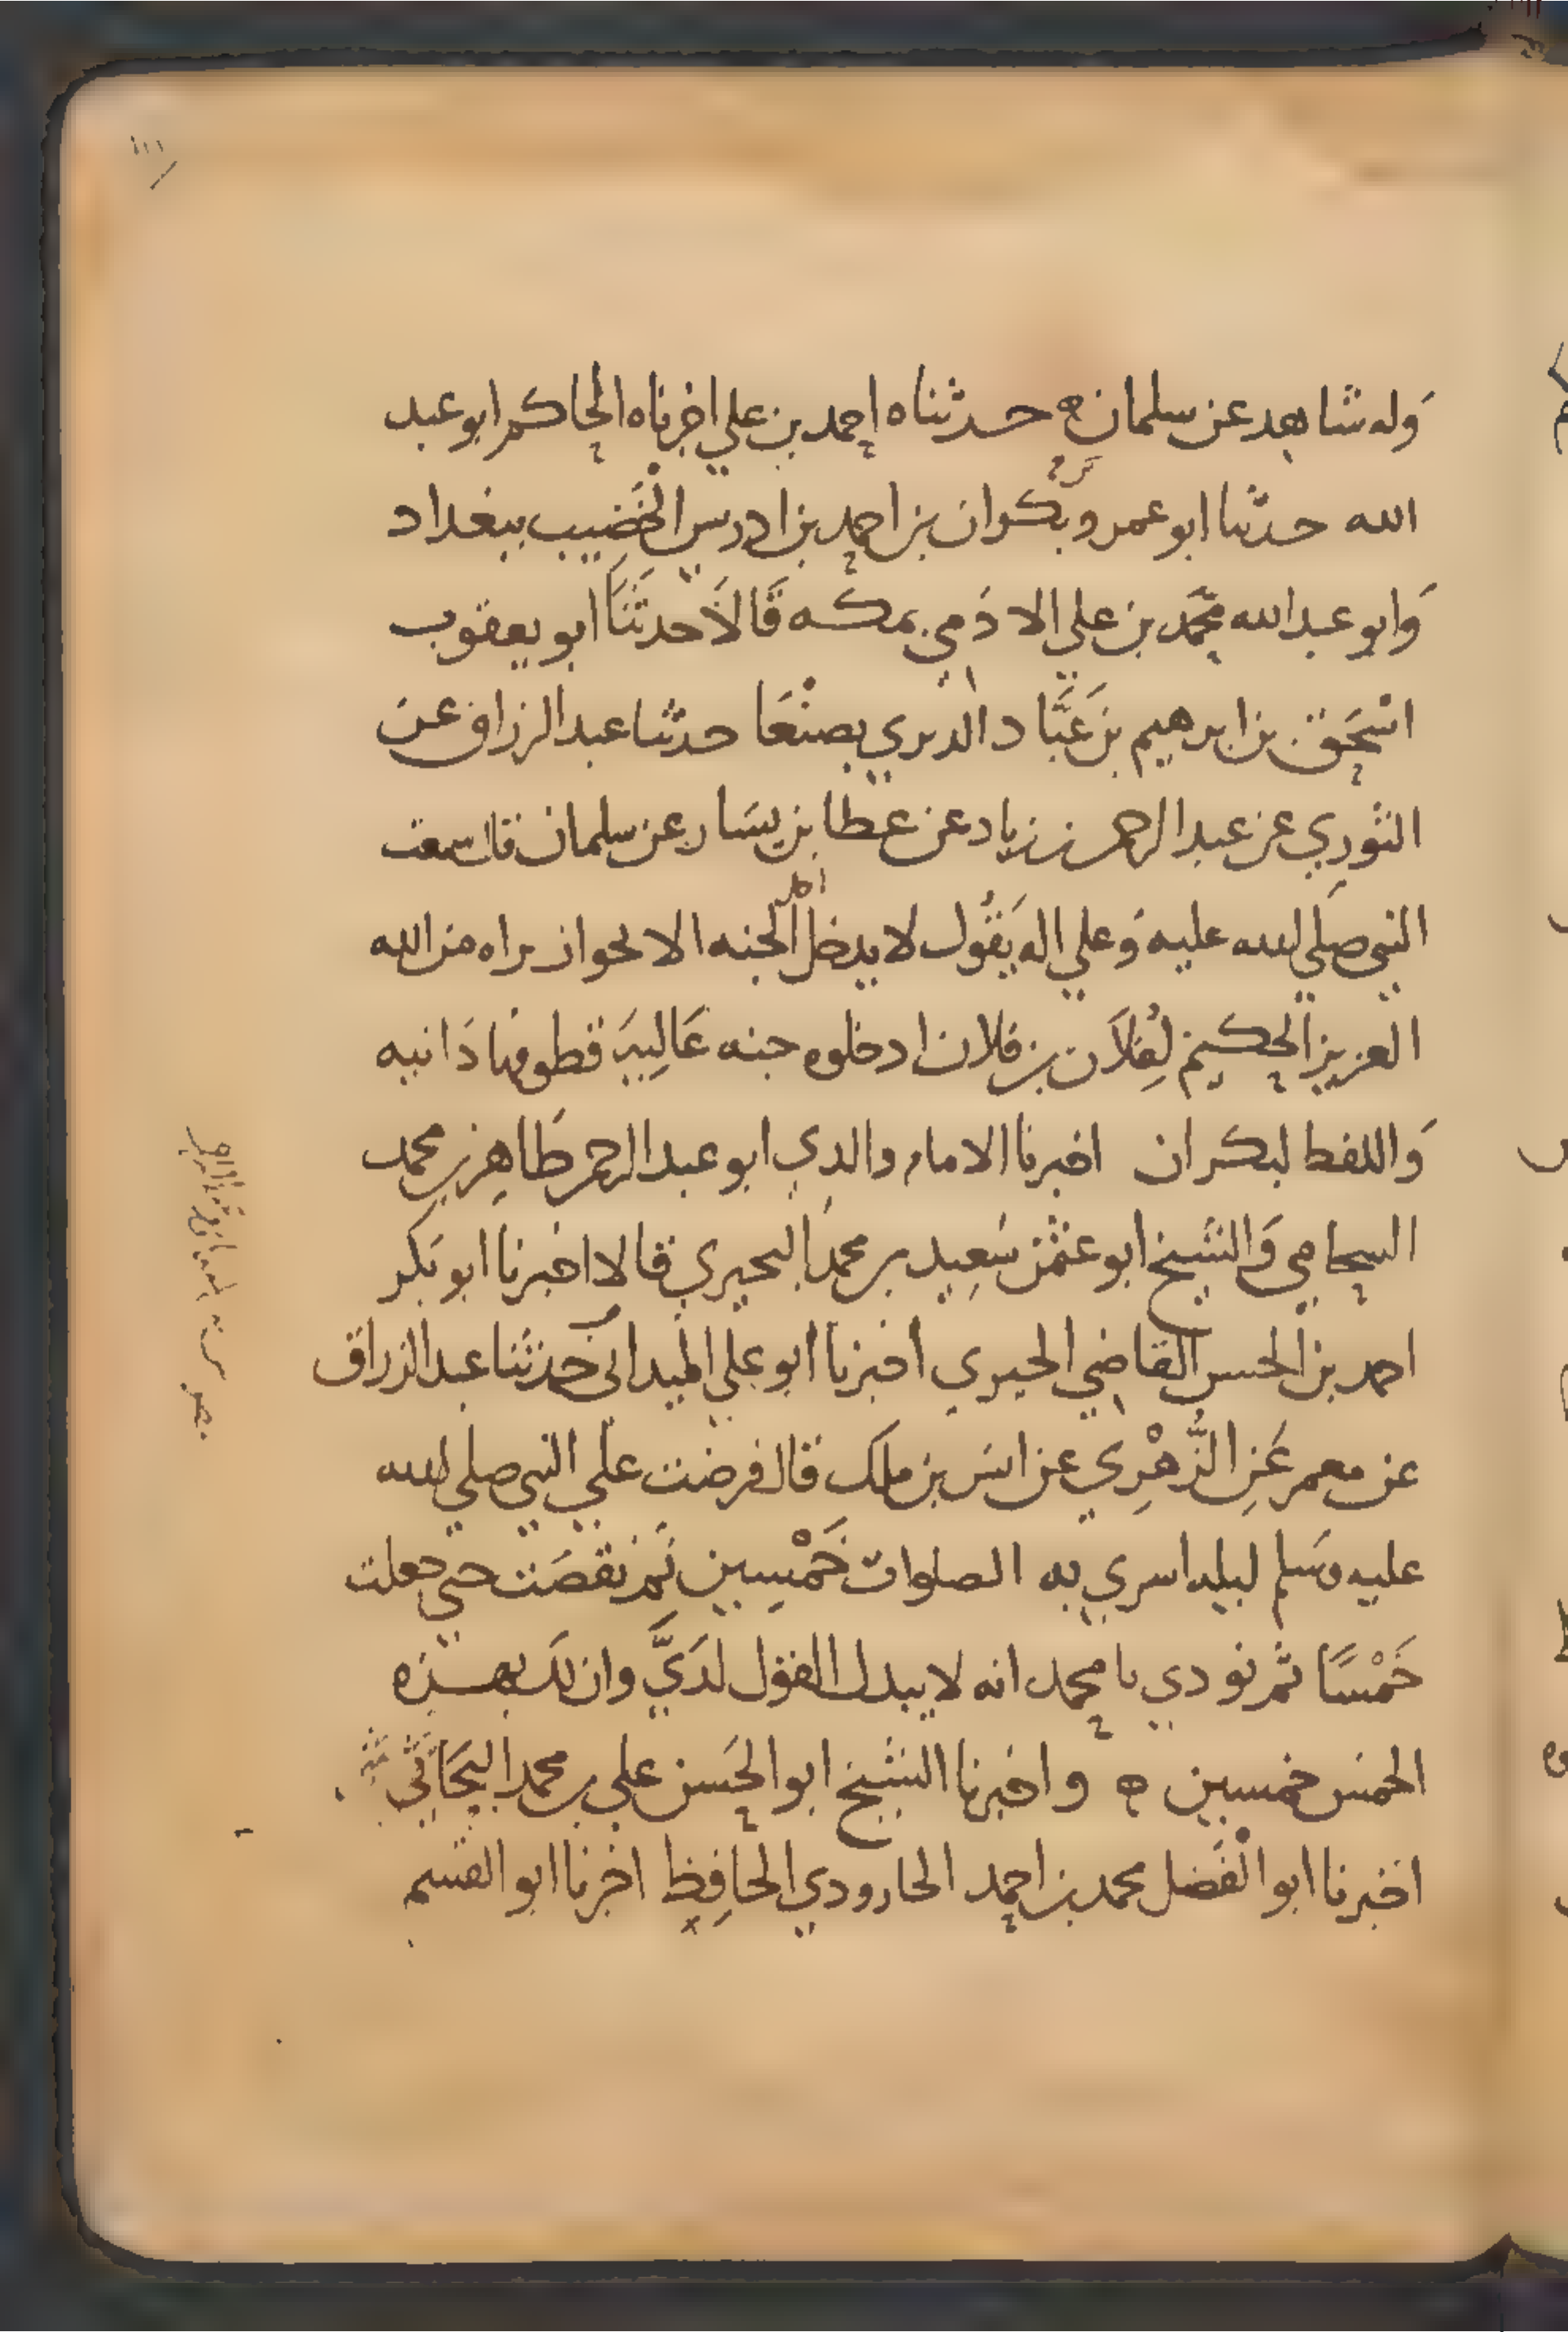 وَله شاهد عن سلمان ه حدثناه احمد بن علي اخبرناه الحاكم ابو عبد
الله حدثنا ابو عمرو بكران بن احمد بن ادريس الخَضِيب ببغداد
وَابو عبدالله محمَّد بن علي الادَمي بمكه قَالَا حدثَنَا ابو يعقوب
اسْحَق بن ابرهيم بن عَبَّاد الدبري بصنْعَا حدثنا عبدالرزاق عن
الثوري عن عبد الرحمن بن زياد عن عطا بن يسَار عن سلمان قال سمعت
النبي صلي الله عليه وَعلي اله يَقُول لا يدخل الجنه الا بجواز براه من الله
العزيز الحكيم لِفُلَان بن فلان ادخلوه جنه عَاليَة قطوفها دَانيه
وَاللفظ لبكران اخبرنا الامام والدي ابو عبد الرحمن طَاهِر بن محمد
الشحامي وَالشيخ ابو عثمن سَعِيد بن محمد البحيري قالا اخبرنا ابو بَكر
احمد بن الحسن القاضي الحيري اخبرنا ابو علي الميداني حدثنا عبد الرزاق
عن معمر عَنِ الزُّهْرِي عن انس بن ملك قال فرضت علي النبي صلي الله
عليه وسَلم ليله اسري به الصلوات خَمْسِين ثم نقصَت حتي جعلت
خَمْسًا ثم نودي يا محمد انه لا يبدل القول لَدَيَّ وان لك بهذه
الخمس خمسين ه واخبرنا الشيخ ابو الحَسن علي بن محمد البحَّاثي
اخبرنا ابو الفَضل محمد بن احمد الجارودي الحافِظ اخبرنا ابو القسم